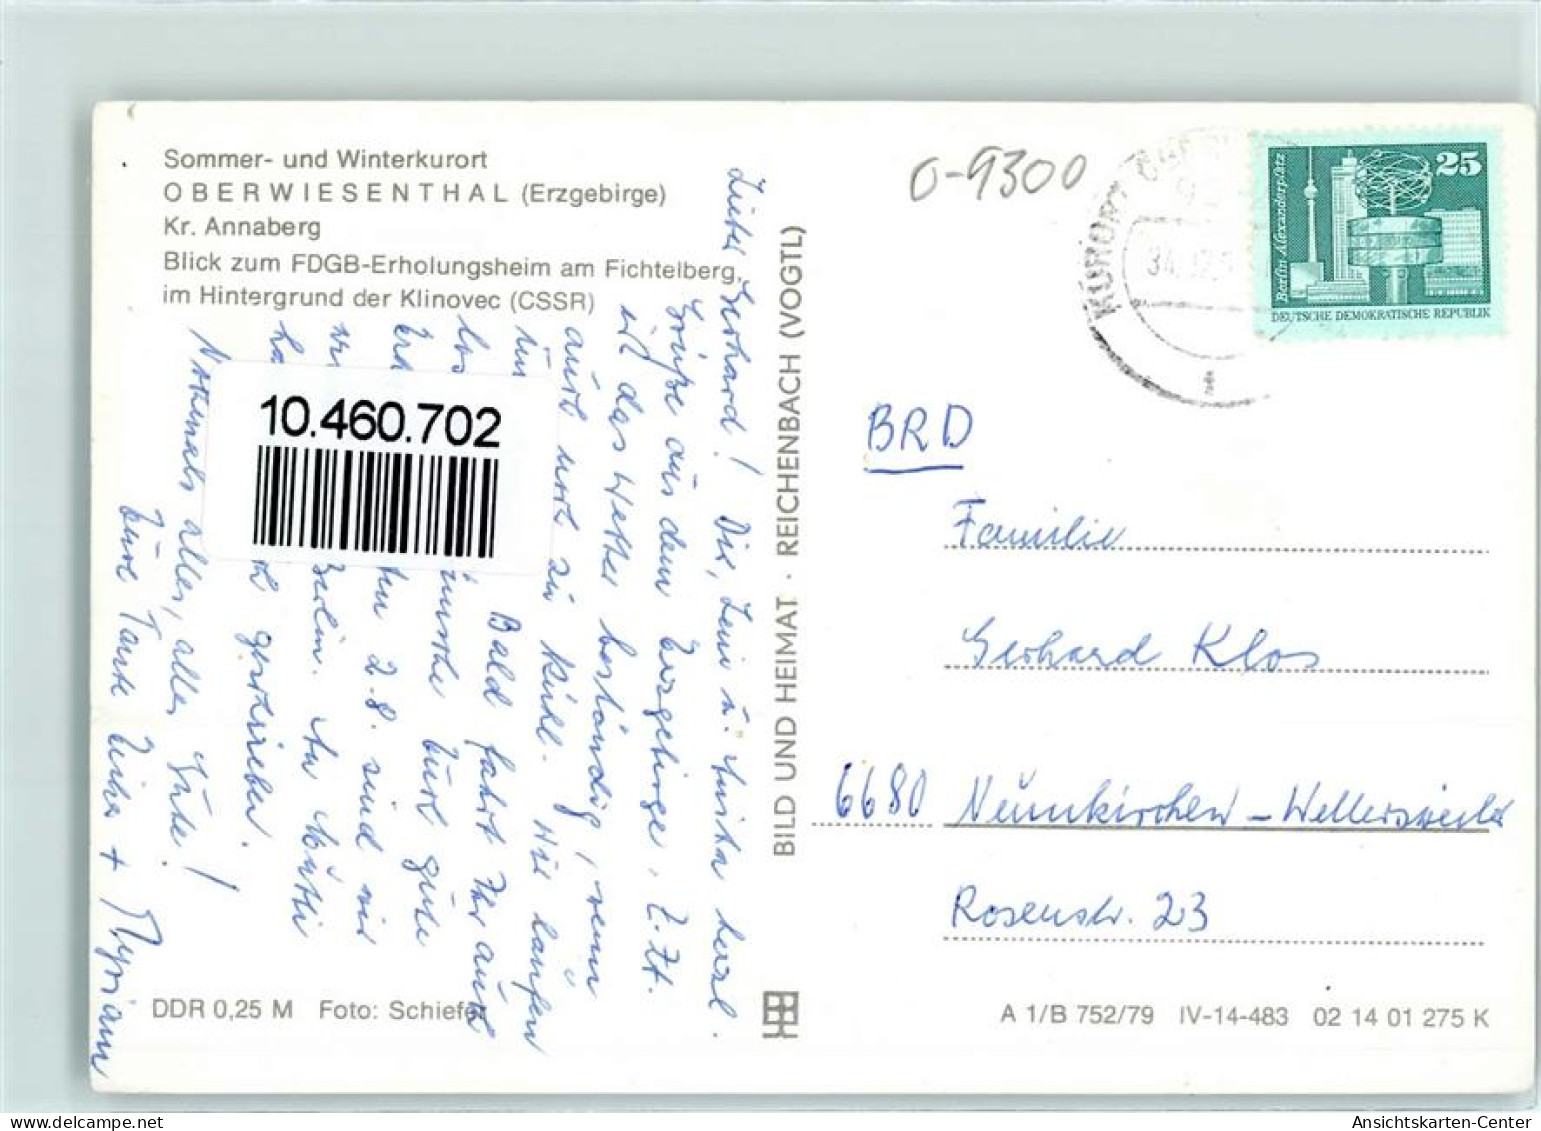 Sommer- und Winterkurort
OBERWIESENTHAL (Erzgebirge)
Kr. Annaberg
Blick zum FDGB-Erholungsheim am Fichtelberg,
im Hintergrund der Klinovec (CSSR)
Lieber Gerhard! Dir, Leni u. Anita herzl.
Grüße aus dem Erzgebirge. Z. Zt.
ist das Wetter beständig, wenn
auch noch zu kühl. Wir laufen
Bald fahrt Ihr auch
los Euch gute
2.8. sind wir
Berlin. An Mutti
geschrieben.
Nochmals alles, alles Gute!
Eure Tante + Myriam
10.460.702
DDR 0,25 M Foto: Schiefer
BILD UND HEIMAT · REICHENBACH (VOGTL)
0-9300
KURORT
25
Berlin Alexanderplatz
DEUTSCHE DEMOKRATISCHE REPUBLIK
BRD
Familie
Gerhard Klos
6680 Neunkirchen - Wellersweiler
Rosenstr. 23
A 1/B 752/79 IV-14-483 02 14 01 275 K
www.ansichtskartenhandel.de
Ansichtskarten-Center